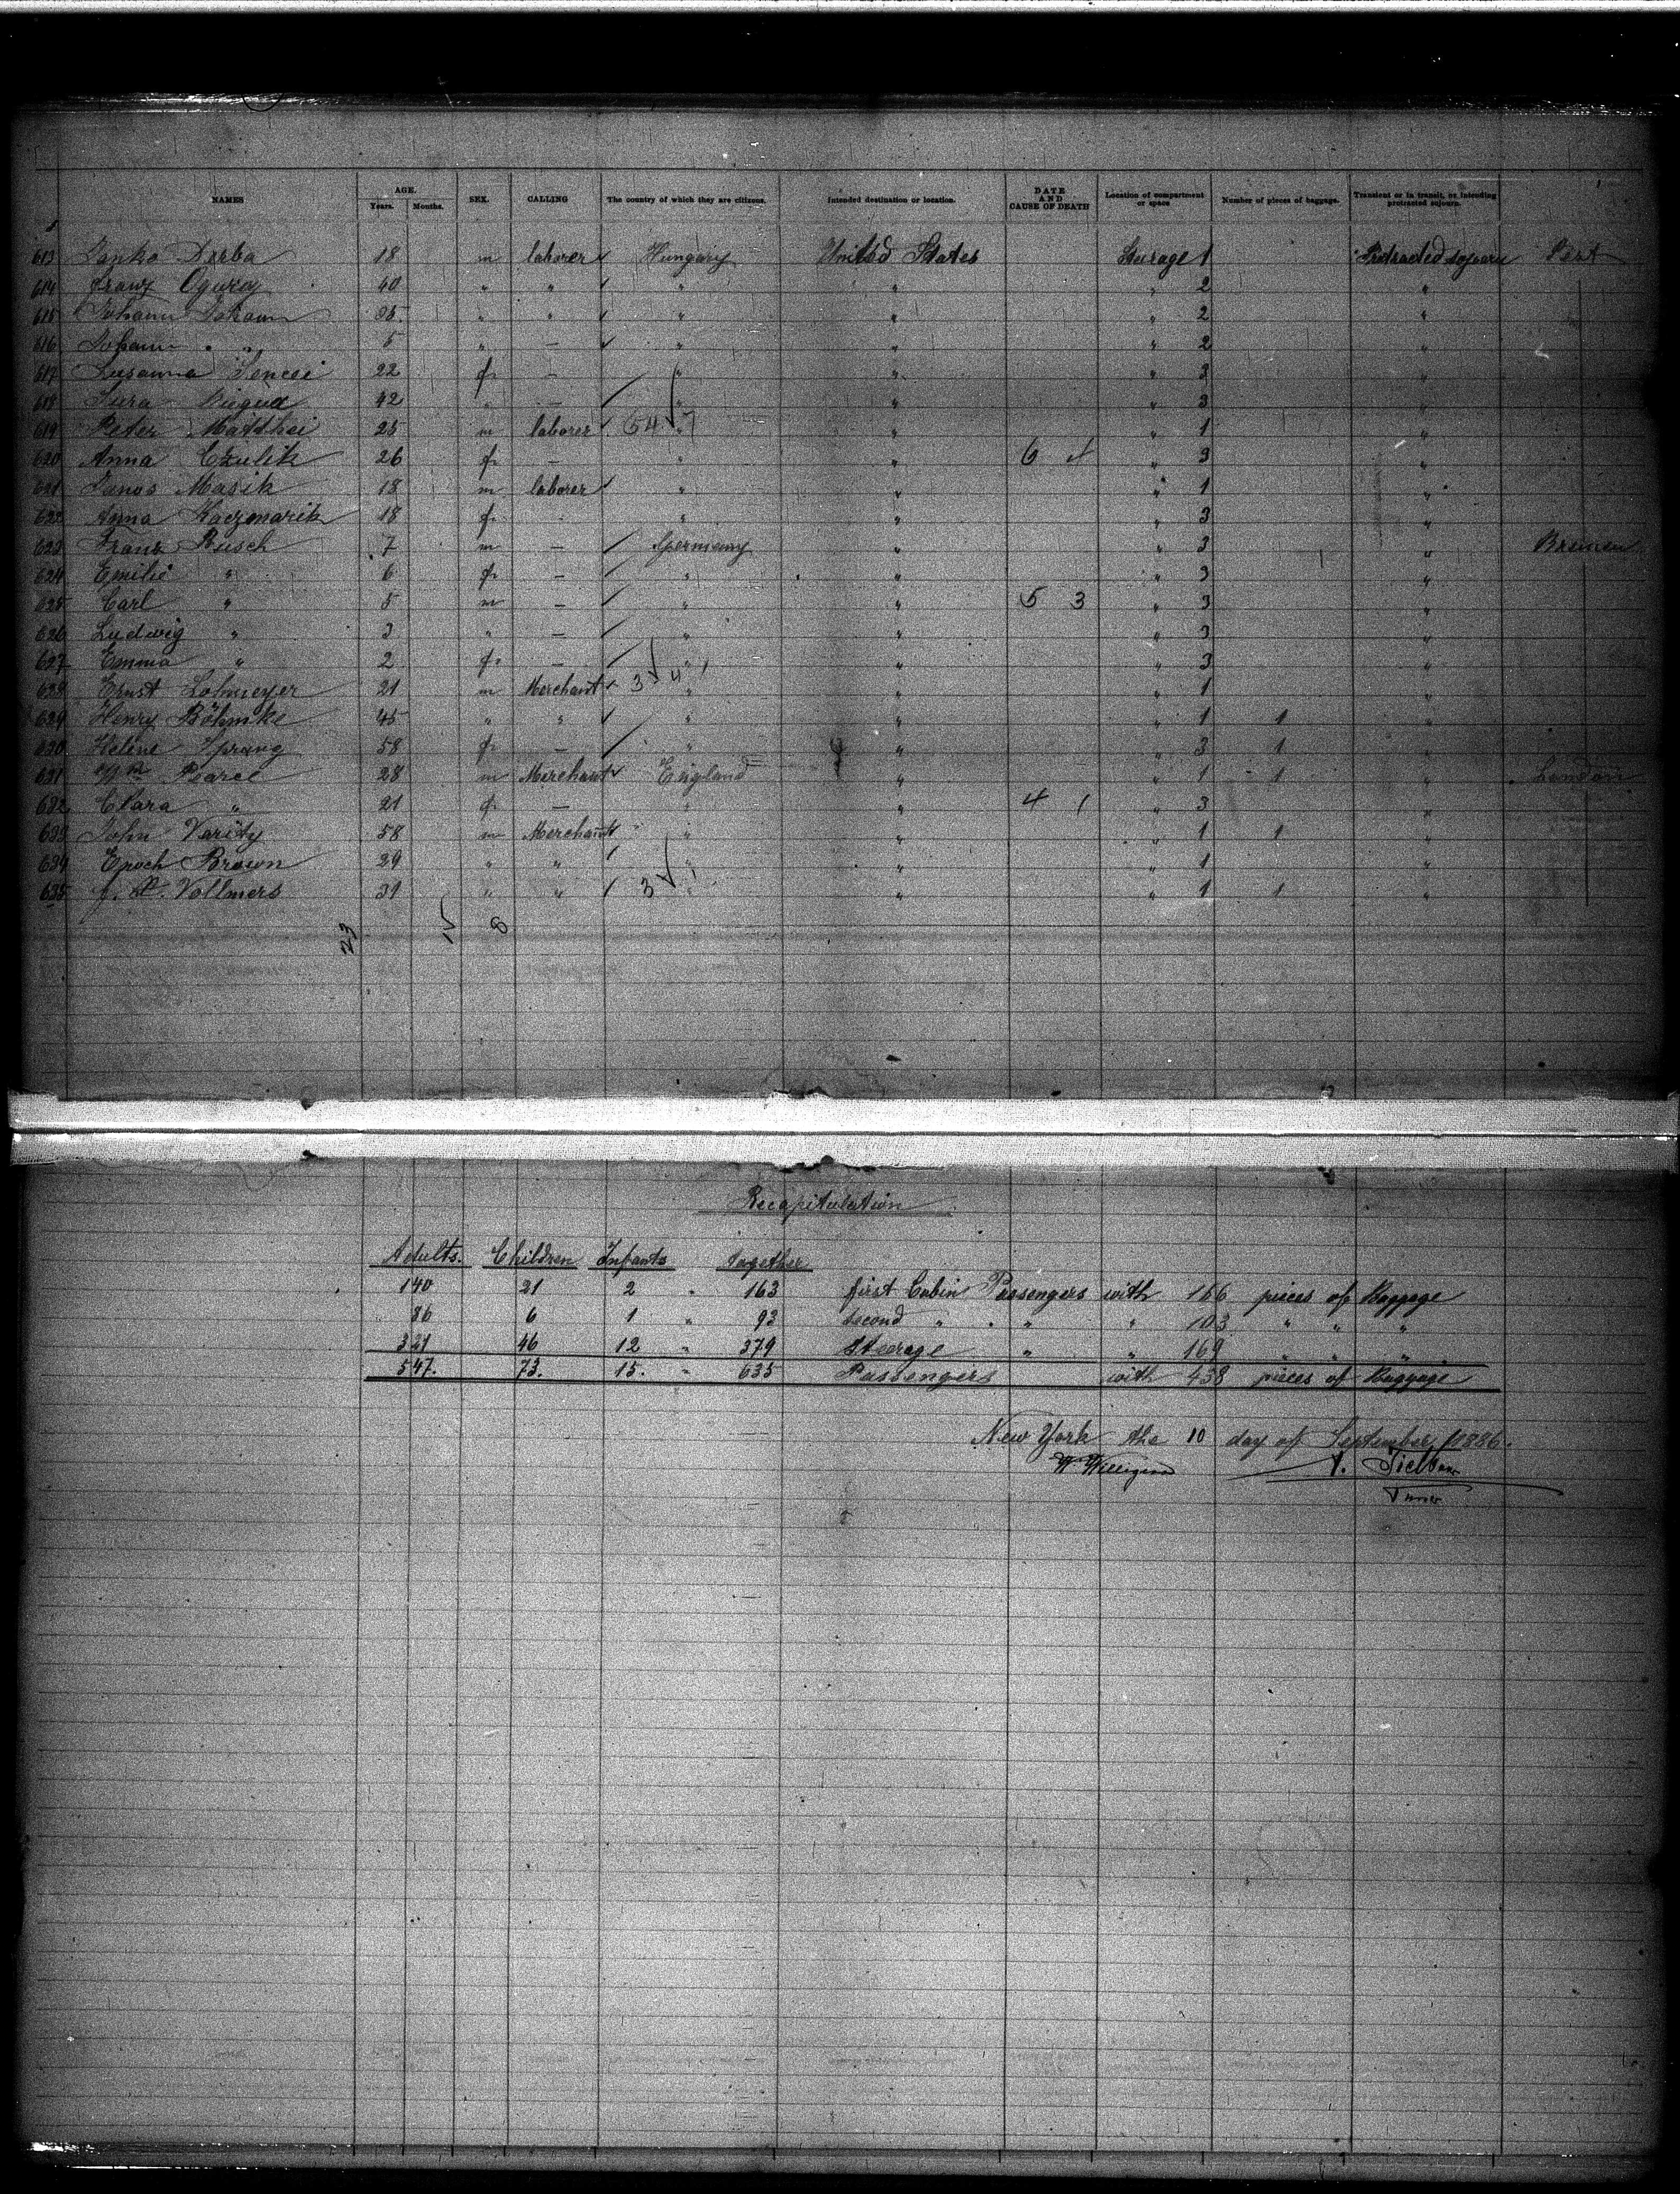 NAMES AGE. Years. Months. SEX. CALLING The country of which they are citizens. Intended destination or location. DATE AND CAUSE OF DEATH Location of compartment or space Number of pieces of baggage. Transient or in transit, or intending protracted sojourn.
613 Janko Dzrba 18 m laborer Hungary United States Steerage 1 Protracted sojourn Pest
614 Franz Oguray 40 " " " " " 2 "
615 Johann Johann " " " " " 2 "
616 Johann " 5 " — " " " 2 "
617 Susanna 22 f. — " " " 3 "
618 42 " — " " " 3 "
619 Peter Matthei 25 m laborer 54 7 " " " 1 "
620 Anna Czulik 26 f. — " " 6 4 " 3 "
621 Janos Masik 18 m laborer " " " 1 "
622 Anna Kaczmarik 18 f. - " " " 3 "
623 Franz Busch 7 m — Germany " " 3 " Bremen
624 Emilie " 6 f. — " " " 3 "
625 Carl " 5 m — " " 5 3 " 3 "
626 Ludwig " 3 " — " " " 3 "
627 Emma " 2 f. — " " " 3 "
628 Ernst Lohmeyer 21 m Merchant 3 4 " " " 1 "
629 Henry Böhmke 45 " " " " " 1 1 "
630 Helene Sprang 58 f. — " " " 3 1 "
631 Wm Pearce 28 m Merchant England " " 1 1 " London
632 Clara " 21 f. — " " 4 1 " 3 "
633 John Varity 58 m Merchant " " " 1 1 "
634 Enoch Brown 29 " " " " " 1 "
635 J. Vollmers 31 " " 3 " " " 1 1 "
23 8
Recapitulation
Adults. Children Infants Together
140 21 2 " 163 first Cabin Passengers with 166 pieces of Baggage
86 6 1 " 93 second " " " " 103 " " "
321 46 12 " 379 Steerage " " 169 " " "
547. 73. 15. " 635 Passengers with 438 pieces of Baggage
New York the 10 day of September 1886.
W. Willigerod